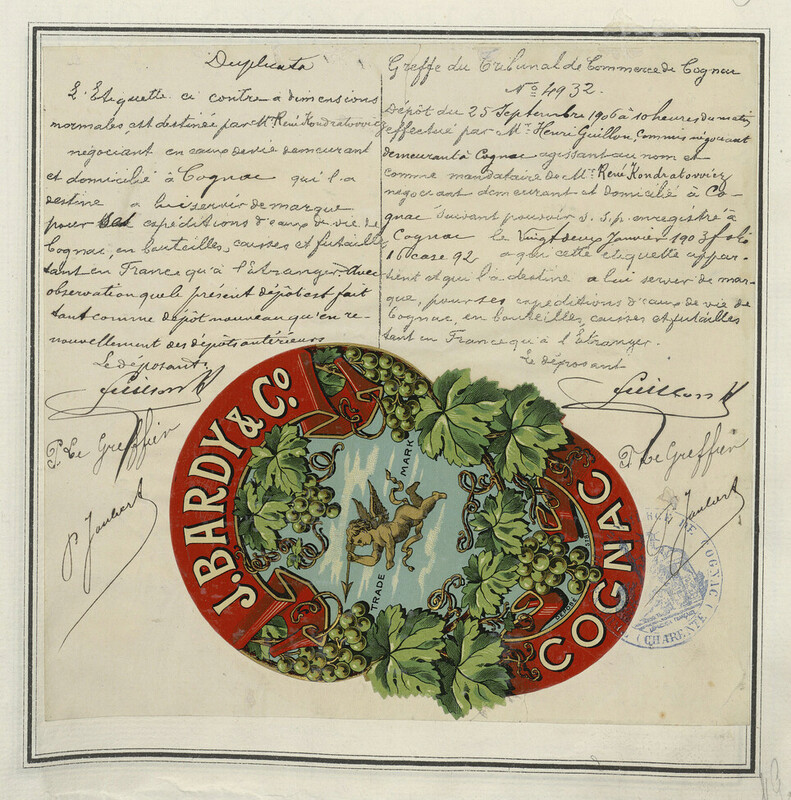 Duplicata
L'Etiquette ci contre a dimensions
normales est destinée par Mr. René Kondratowiez
négociant en eaux de vie demeurant
et domicilié à Cognac qu'il a
destine a lui servir de marque
pour ses expéditions d'eaux de vie de
Cognac, en bouteilles, caisses et futailles
tant en France qu'à l'Etranger. Avec
observation que le présent dépôt est fait
tant comme dépôt nouveau qu'en re-
nouvellement des dépôts antérieurs
Le déposant
Guillon H
P. Le Greffier
P. Joubert
Greffe du Tribunal de Commerce de Cognac
No. 4932.
Dépôt du 25 Septembre 1906 à 10 heures du matin
effectué par Mr. Henri Guillon, Commis négociant
demeurant à Cognac agissant au nom et
comme mandataire de Mr. René Kondratowiez
négociant demeurant et domicilié à Co-
gnac suivant pouvoir s. s. p. enregistré à
Cognac le Vingt deux Janvier 1903 folio
16 case 92 cette etiquette appar-
tient et qui l'a destine a lui servir de mar-
que, pour ses expeditions d'eaux de vie de
Cognac, en bouteilles, caisses et futailles
tant en France qu'à l'Étranger.
Le déposant
Guillon H
P. Le Greffier
Joubert
J. BARDY & Co.
TRADE MARK
COGNAC
DE COGNAC
(CHARENTE)